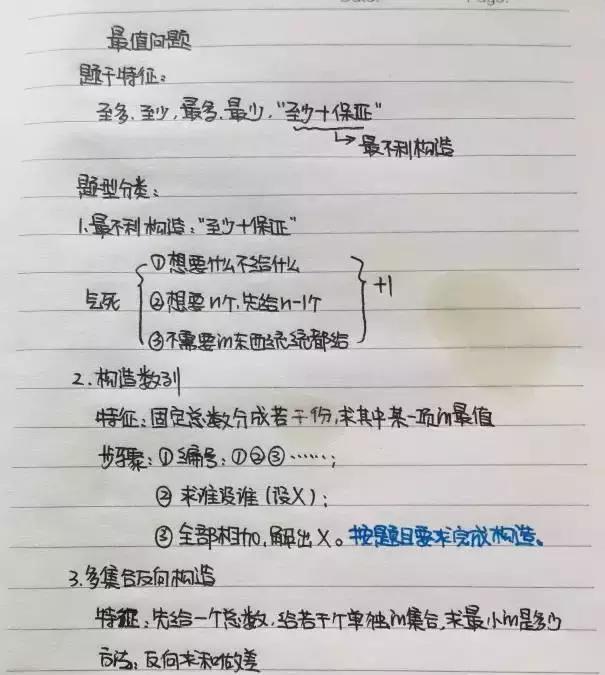 Page:
最值问题
题干特征:
至多,至少,最多,最少,"至少+保证"
↳最不利构造
题型分类:
1.最不利构造:"至少+保证"
①想要什么不给什么
②想要n个,先给n-1个
③不需要的东西统统都给
+1
2.构造数列
特征:固定总数分成若干份,求其中某一项的最值
步骤:①编号:①②③……;
②求谁设谁(设X);
③全部相加,解出X。按题目要求完成构造。
3.多集合反向构造
特征:先给一个总数,给若干个单独的集合,求最小的是多少
方法:反向求和做差